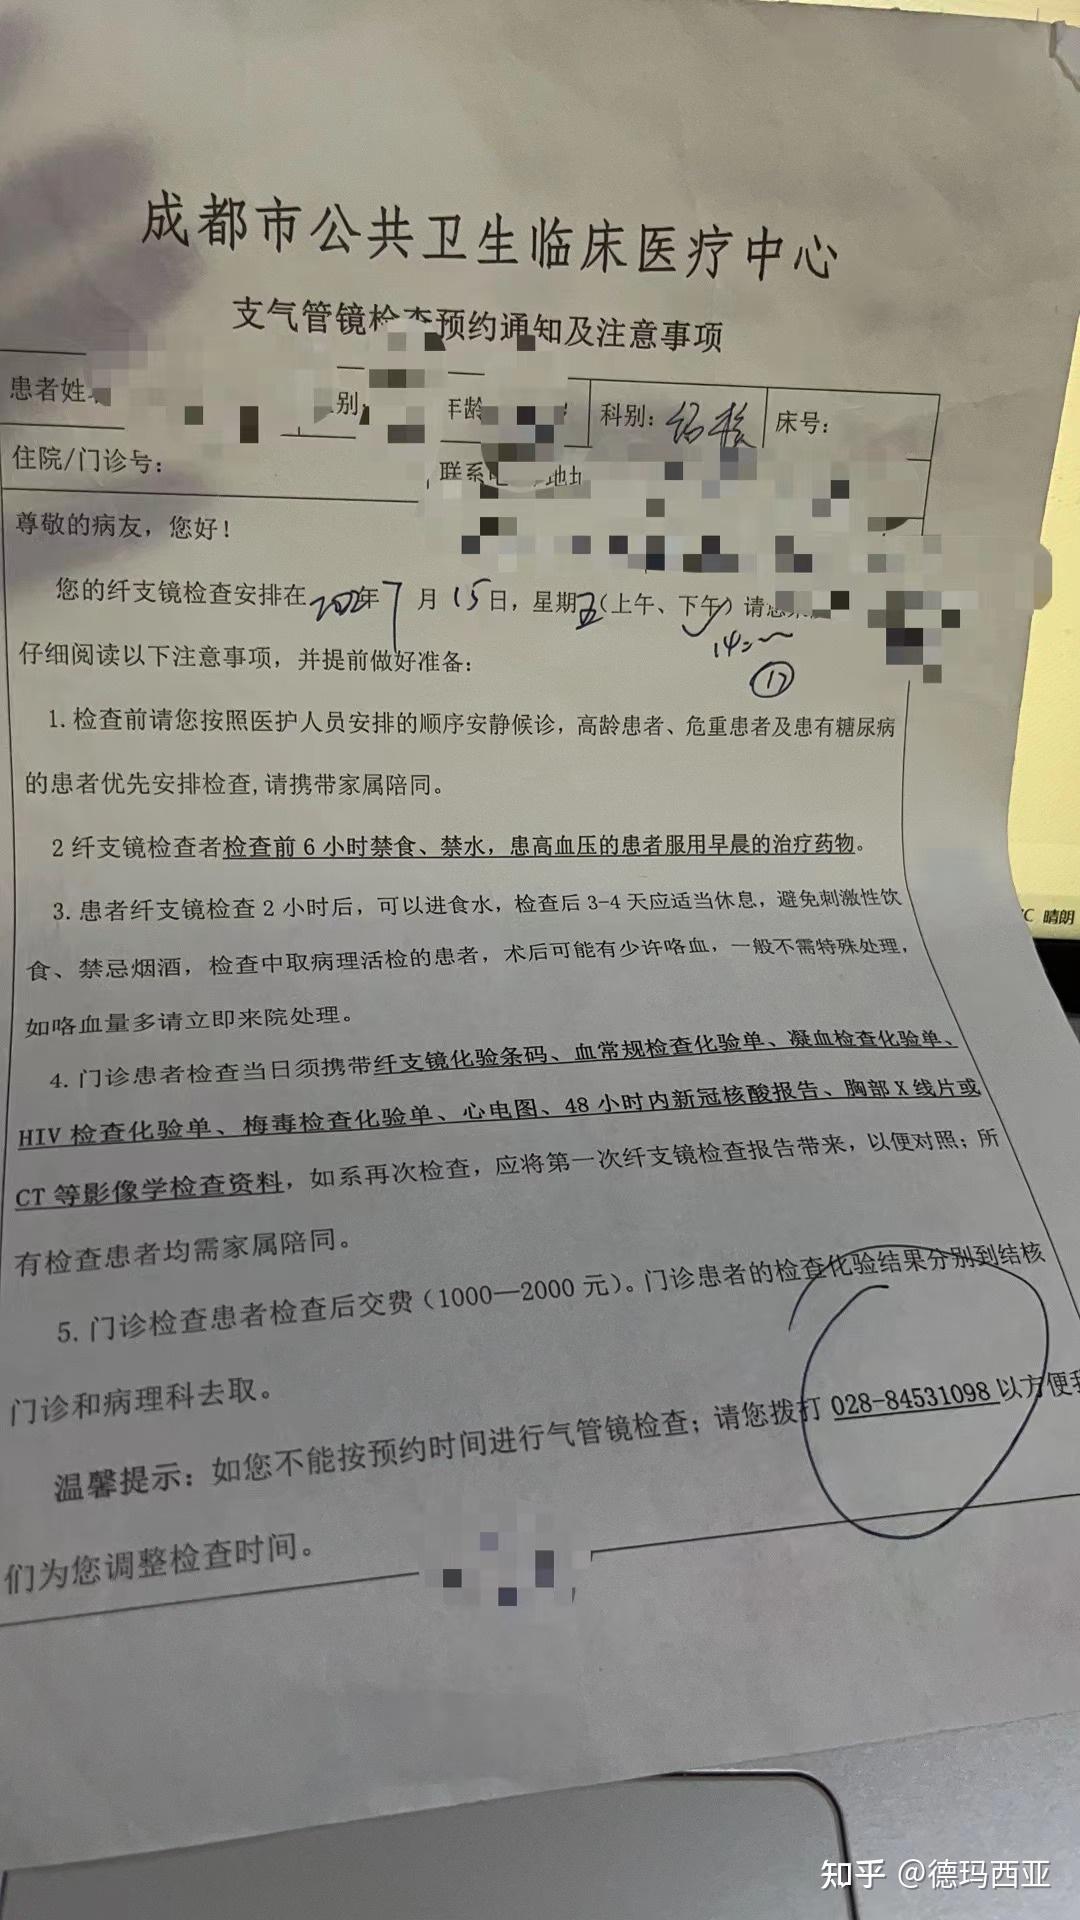 成都市公共卫生临床医疗中心
支气管镜检查预约通知及注意事项
患者姓 别 年龄 科别：结核 床号：
住院/门诊号： 联系 地址
尊敬的病友，您好！
您的纤支镜检查安排在2022年7月15日，星期五（上午、下午）请
14:
17
仔细阅读以下注意事项，并提前做好准备：
1.检查前请您按照医护人员安排的顺序安静候诊，高龄患者、危重患者及患有糖尿病
的患者优先安排检查,请携带家属陪同。
2纤支镜检查者检查前6小时禁食、禁水，患高血压的患者服用早晨的治疗药物。
3.患者纤支镜检查2小时后，可以进食水，检查后3-4天应适当休息，避免刺激性饮
食、禁忌烟酒，检查中取病理活检的患者，术后可能有少许咯血，一般不需特殊处理，
如咯血量多请立即来院处理。
4.门诊患者检查当日须携带纤支镜化验条码、血常规检查化验单、凝血检查化验单、
HIV检查化验单、梅毒检查化验单、心电图、48小时内新冠核酸报告、胸部X线片或
CT等影像学检查资料，如系再次检查，应将第一次纤支镜检查报告带来，以便对照；所
有检查患者均需家属陪同。
5.门诊检查患者检查后交费（1000—2000元）。门诊患者的检查化验结果分别到结核
门诊和病理科去取。
温馨提示：如您不能按预约时间进行气管镜检查；请您拨打028-84531098以方便我
们为您调整检查时间。
℃ 晴朗
知乎 @德玛西亚